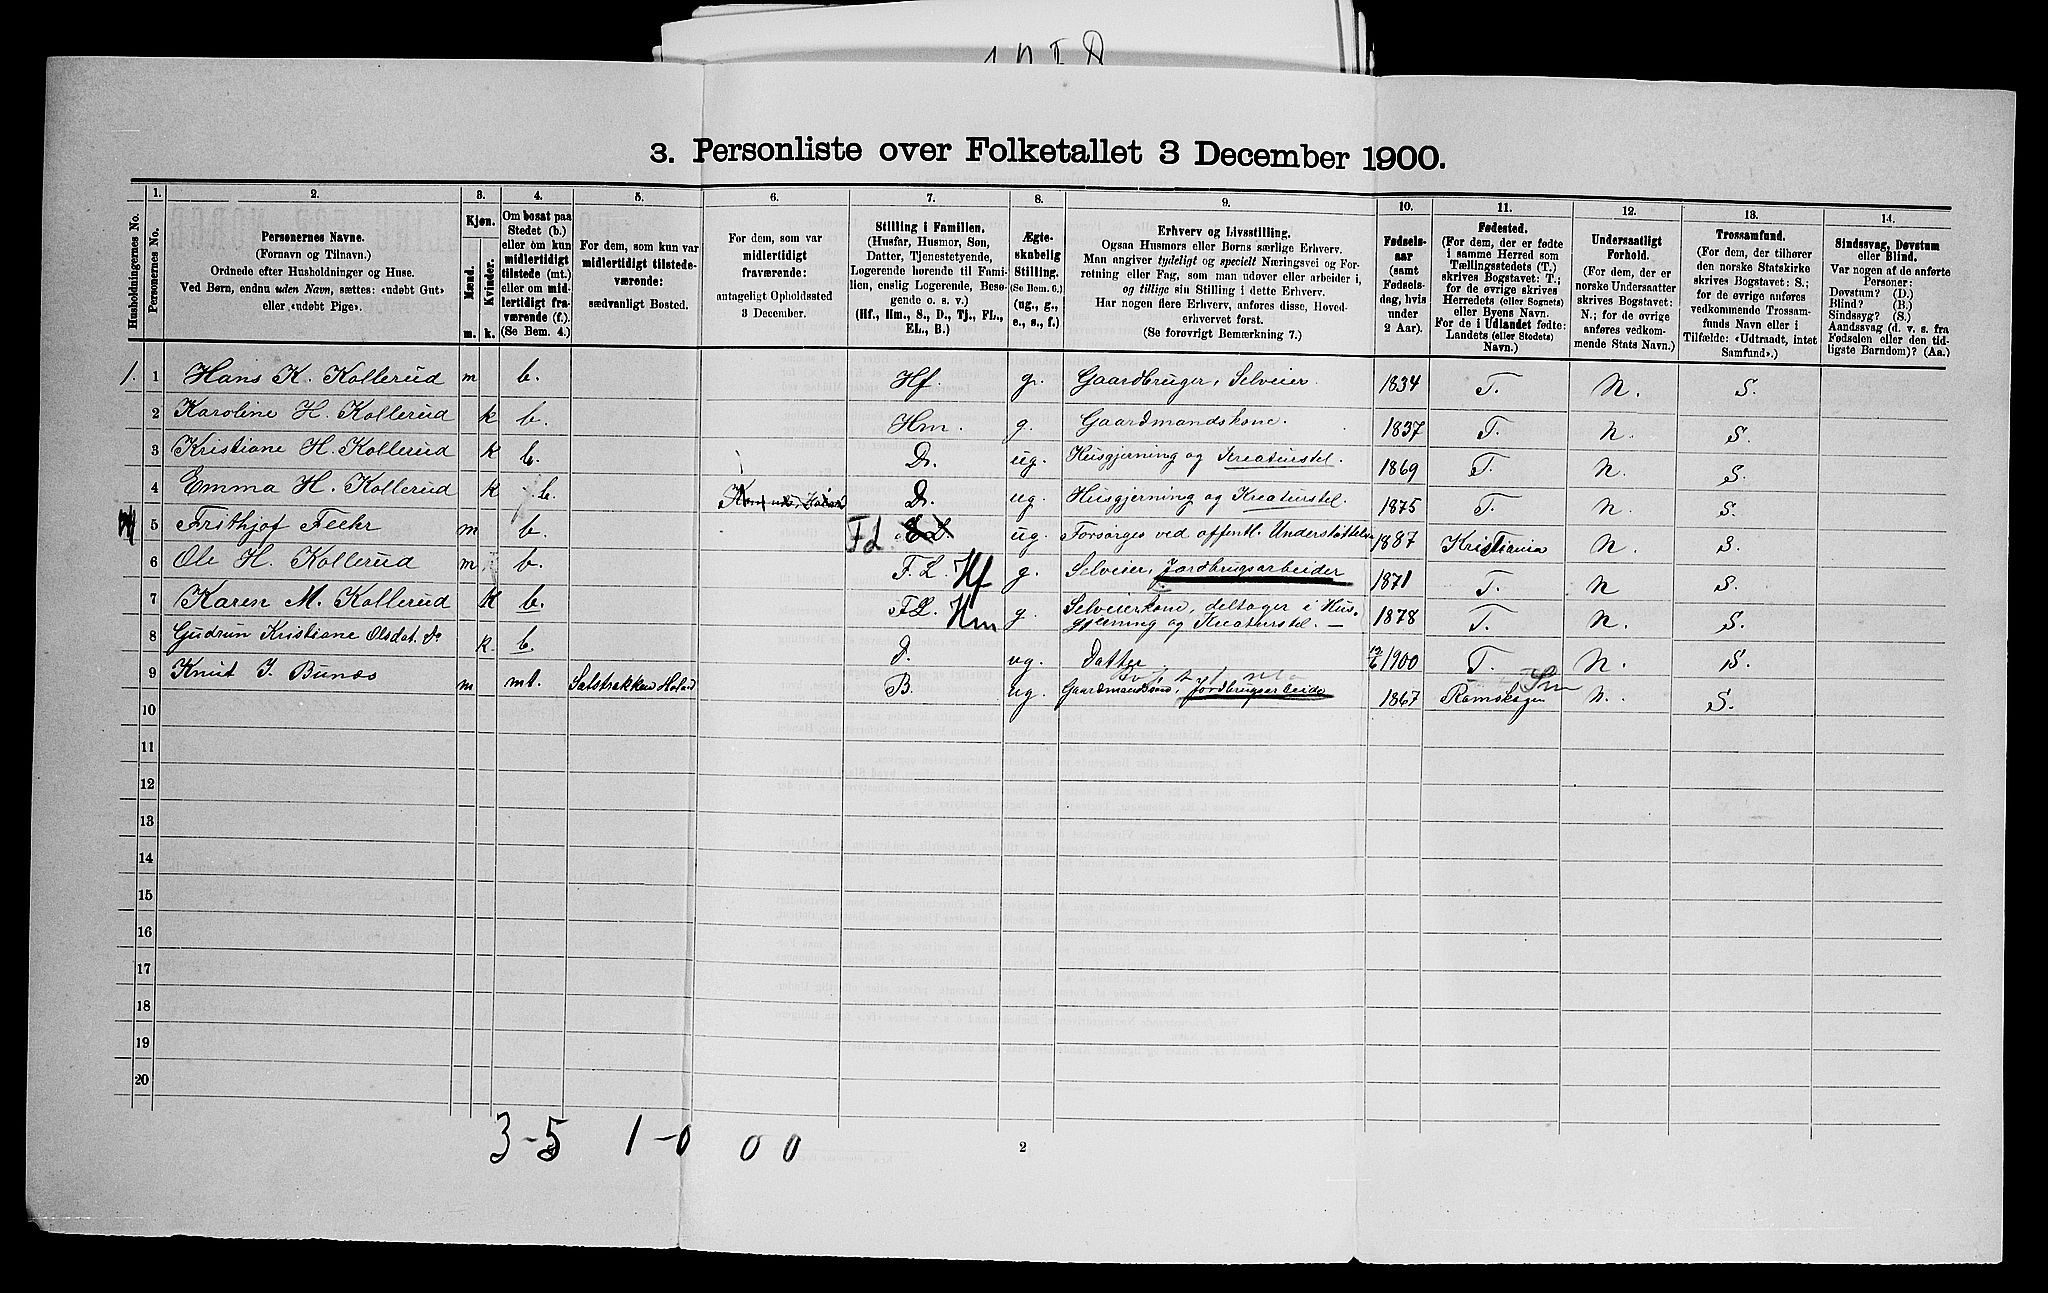 3. Personliste over Folketallet 3 December 1900.
1. 2. 3. 4. 5. 6. 7. 8. 9. 10. 11. 12. 13. 14.
Husholdningernes No.
Personernes No.
Personernes Navne.
(Fornavn og Tilnavn.)
Ordnede efter Husholdninger og Huse.
Ved Børn, endnu uden Navn, sættes: «udøbt Gut»
eller «udøbt Pige».
Kjøn.
Mænd. Kvinder.
m. k.
Om bosat paa
Stedet (b.)
eller om kun
midlertidigt
tilstede (mt.)
eller om mid-
lertidigt fra-
værende (f.).
(Se Bem. 4.)
For dem, som kun var
midlertidigt tilstede-
værende:
sædvanligt Bosted.
For dem, som var
midlertidigt
fraværende:
antageligt Opholdssted
3 December.
Stilling i Familien.
(Husfar, Husmor, Søn,
Datter, Tjenestetyende,
Logerende hørende til Fami-
lien, enslig Logerende, Besø-
gende o. s. v.)
(Hf., Hm., S., D., Tj., FL.,
EL., B.)
Ægte-
skabelig
Stilling.
(Se Bem. 6.)
(ug., g.,
e., s., f.)
Erhverv og Livsstilling.
Ogsaa Husmors eller Børns særlige Erhverv.
Man angiver tydeligt og specielt Næringsvei og For-
retning eller Fag, som man udøver eller arbeider i,
og tillige sin Stilling i dette Erhverv.
Har nogen flere Erhverv, anføres disse, Hoved-
erhvervet først.
(Se forøvrigt Bemærkning 7.)
Fødsels-
aar
(samt
Fødsels-
dag, hvis
under
2 Aar).
Fødested.
(For dem, der er fødte
i samme Herred som
Tællingsstedets (T.)
skrives Bogstavet: T.;
for de øvrige skrives
Herredets (eller Sognets)
eller Byens Navn.
For de i Udlandet fødte:
Landets (eller Stedets)
Navn.)
Undersaatligt
Forhold.
(For dem, der er
norske Undersaatter
skrives Bogstavet:
N.; for de øvrige
anføres vedkom-
mende Stats Navn.)
Trossamfund.
(For dem, der tilhører
den norske Statskirke
skrives Bogstavet: S.;
for de øvrige anføres
vedkommende Trossam-
funds Navn eller i
Tilfælde: «Udtraadt, intet
Samfund».)
Sindssvag, Døvstum
eller Blind.
Var nogen af de anførte
Personer:
Døvstum? (D.)
Blind? (B.)
Sindssyg? (S.)
Aandssvag (d. v. s. fra
Fødselen eller den tid-
ligste Barndom)? (Aa.)
1. 1 Hans K. Kollerud m b. Hf. g. Gaardbruger, Selveier. 1834 T. N. S.
2 Karoline H. Kollerud k b. Hm. g. Gaardmandskone. 1837 T. N. S.
3 Kristiane H. Kollerud k b. D. ug. Husgjerning og Kreaturstel. 1869 T. N. S.
4 Emma H. Kollerud k b. D. ug. Husgjerning og Kreaturstel. 1875 T. N. S.
5 Frithjof m b. FL EL ug. Forsørges ved offentl. Understøttelse 1887 Kristiania N. S.
6 Ole H. Kollerud m b. F. L. Hf g. Selveier, Jordbrugsarbeider 1871 T. N S.
7 Karen M. Kollerud k b. FL. Hm g. Selveierkone, deltager i Hus-
gjerning og Kreaturstel. — 1878 T. N. S.
8 Gudrun Kristiane Olsdat. Do k. b. D. ug. Datter 1900 T. N. S.
9 Knut J. Bunæs m mt. B. ug. Gaardmandssøn, Jordbrugsarbeider 1867 Romskogen Sm N. S.
10
11
12
13
14
15
16
17
18
19
20
3-5 1-0 0 0
2